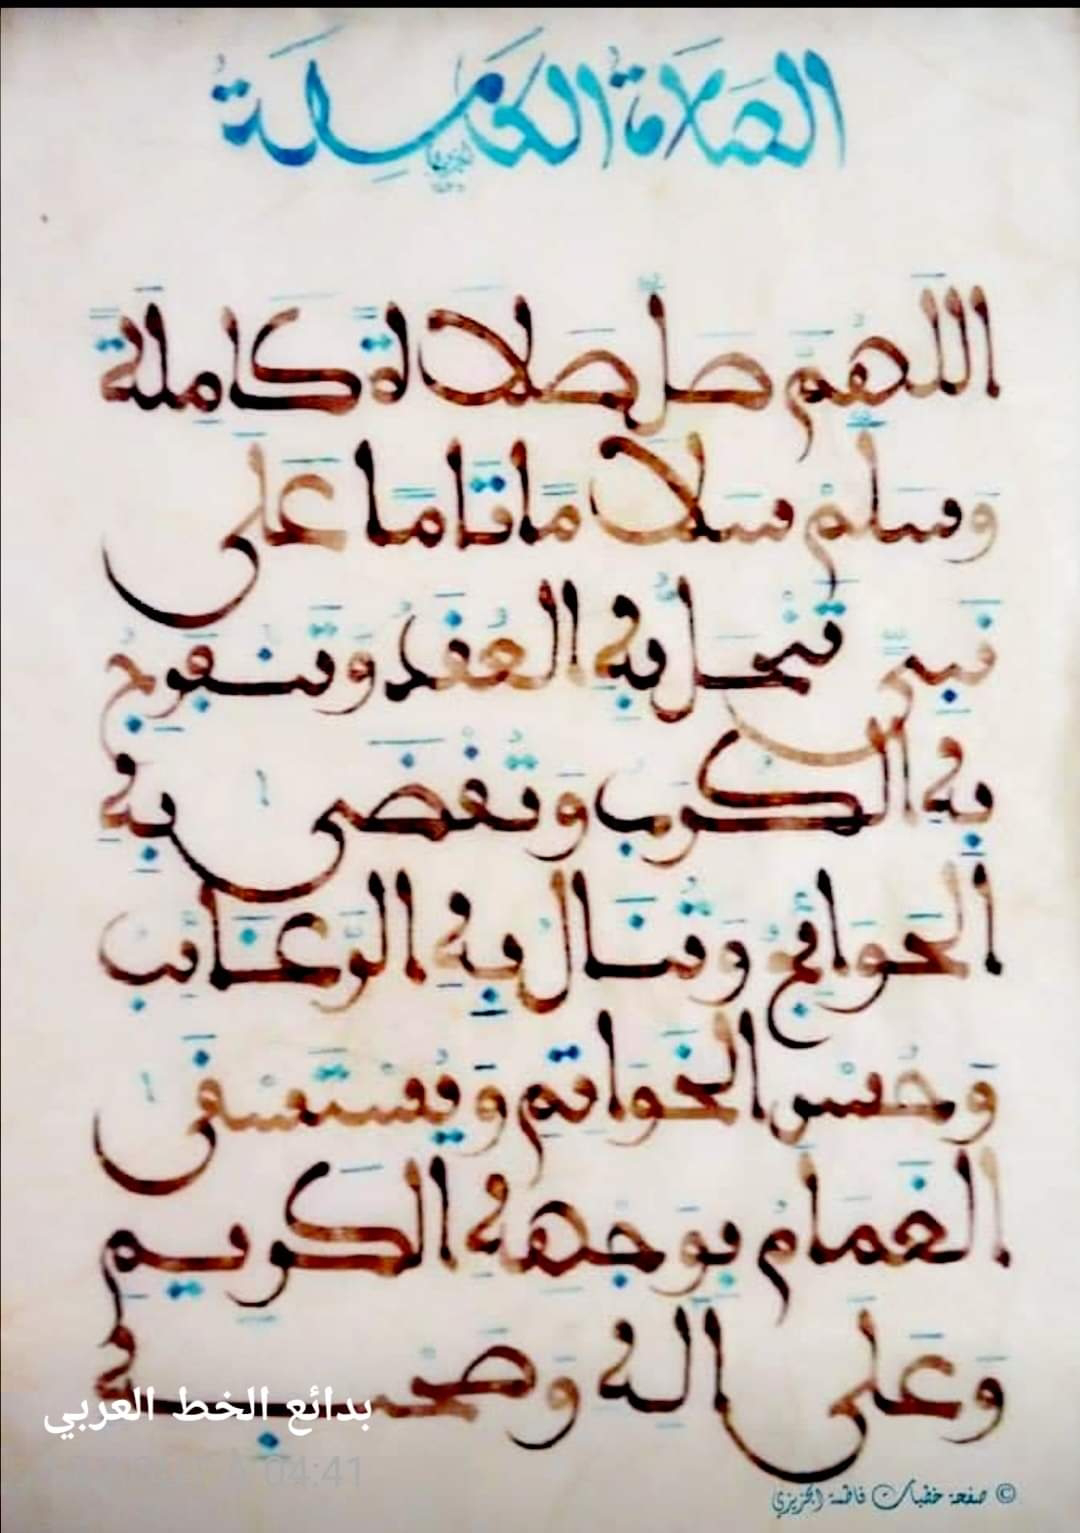 الصلاةُ الكَامِلَةُ
اللَّهُمَّ صَلِّ صَلَاةً كَامِلَةً
وَسَلِّمْ سَلَامًا تَامًّا عَلَى
نَبِيٍّ تَنْحَلُّ بِهِ العُقَدُ وَتَنْفَرِجُ
بِهِ الكُرَبُ وَتُقْضَى بِهِ
الحَوَائِجُ وَتُنَالُ بِهِ الرَّغَائِبُ
وَحُسْنُ الخَوَاتِمِ وَيُسْتَسْقَى
الغَمَامُ بِوَجْهِهِ الكَرِيمِ
وَعَلَى آلِهِ وَصَحْبِهِ
بدائع الخط العربي
04:41
© صفحة خطبات فاطمة الجزيزي